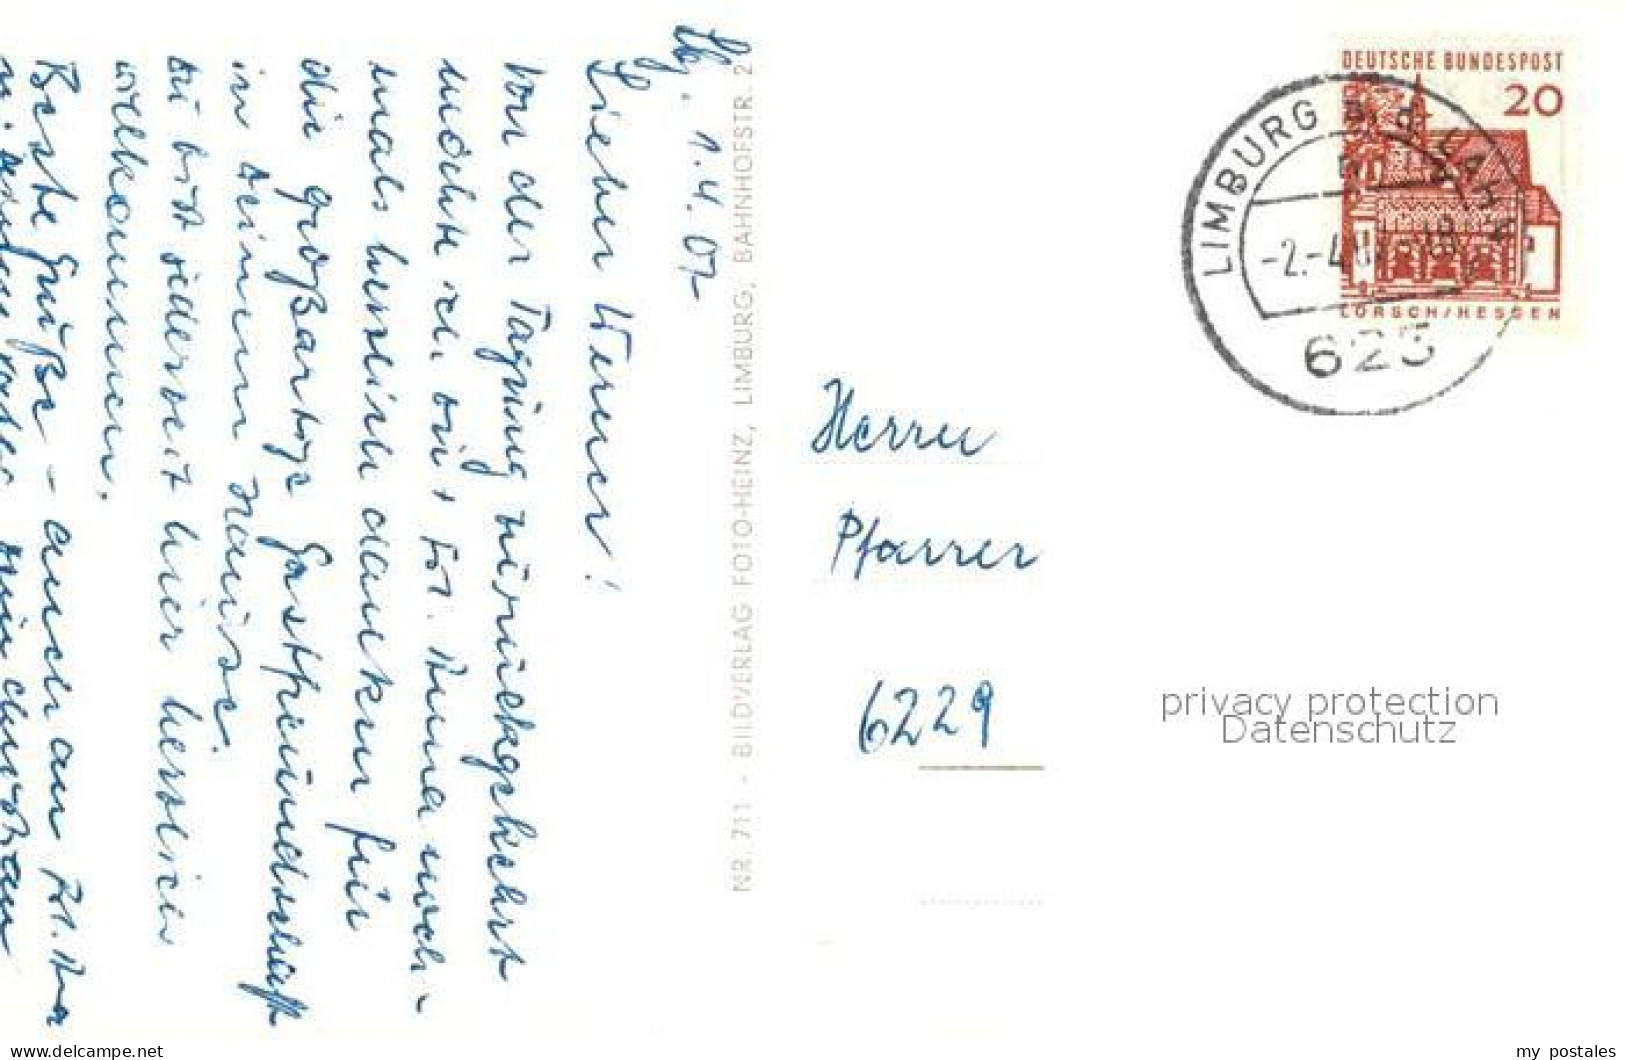 Lbg. 1.4.67
Lieber Werner!
Von der Tagung zurückgekehrt
möchte ich dir + Frl. Anna noch-
mals herzlich danken für
die großartige Gastfreundschaft
in deinem Hause.
Du bist jederzeit hier herzlich
willkommen.
Beste Grüße - auch an Frl. Anna
NR. 711 - BILDVERLAG FOTO-HEINZ, LIMBURG, BAHNHOFSTR. 2
DEUTSCHE BUNDESPOST
20
LORSCH/HESSEN
LIMBURG a.d. LAHN
-2.-4.
625
Herrn
Pfarrer
6229
privacy protection
Datenschutz
my postales